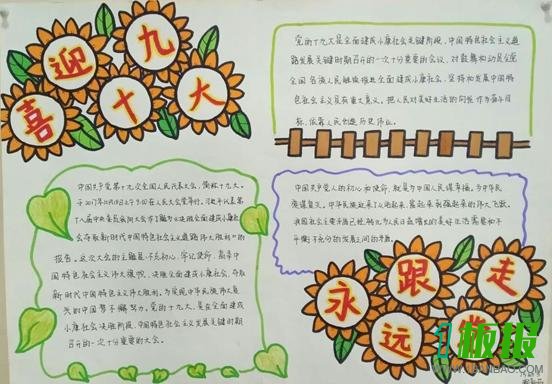 喜迎十九大
党的十九大是全面建成小康社会关键阶段,中国特色社会主义道路
发展关键时期召开的一次十分重要的会议,对鼓舞和动员全党
全国各族人民继续推进全面建成小康社会,坚持和发展中国特
色社会主义具有重大意义。把人民对美好生活的向往作为奋斗目
标,依靠人民创造历史伟业。
中国共产党第十九次全国人民代表大会,简称十九大。
于2017年10月18日上午9点在人民大会堂举行。习近平代表第
十八届中央委员会向大会作了题为《决胜全面建成小康社
会夺取新时代中国特色社会主义道路伟大胜利》的
报告。这次大会的主题是:不忘初心,牢记使命,高举
中国特色社会主义伟大旗帜,决胜全面建成小康社会,夺取
新时代中国特色社会主义伟大胜利,为实现中华民族伟大复
兴的中国梦不懈努力。党的十九大,是在全面建成
小康社会决胜阶段、中国特色社会主义发展关键时期
召开的一次十分重要的大会。
中国共产党人的初心和使命,就是为中国人民谋幸福,为中华民
族谋复兴。中华民族迎来了从站起来、富起来到强起来的伟大飞跃。
我国社会主要矛盾已经转化为人民日益增长的美好生活需要和不
平衡不充分的发展之间的矛盾。
永远跟走
板报